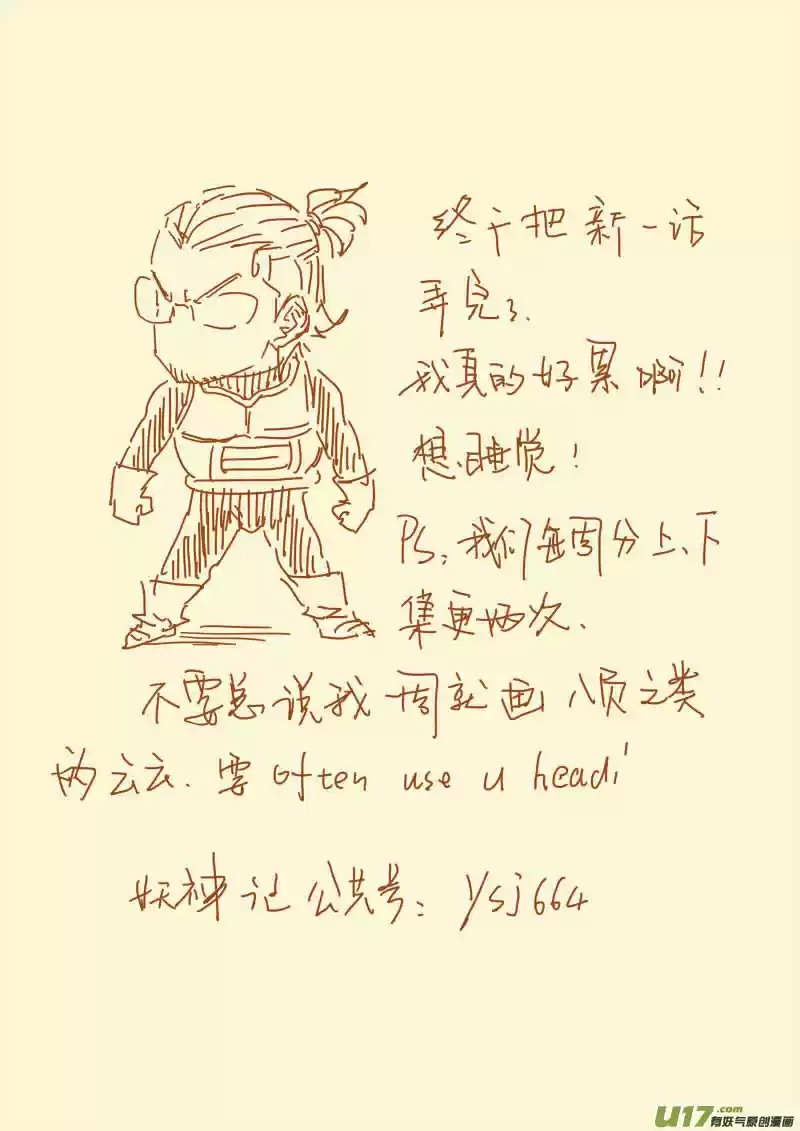 终于把新一话
弄完了.
我真的好累啊!!
想睡觉!
PS:我们每周分上、下
集更两次.
不要总说我一周就画八页之类
的云云.要often use u head!
妖神记公共号:ysj664
U17.com
有妖气原创漫画